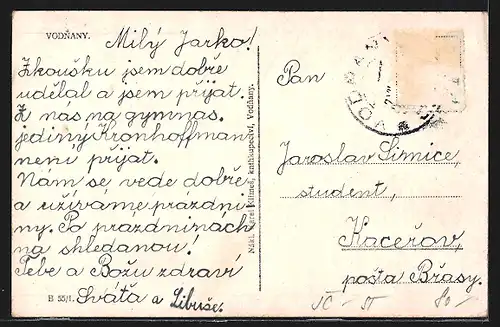 VODŇANY.
Milý Jarko!
Zkoušku jsem dobře
udělal a jsem přijat.
Z nas na gymnas.
jediný Kronhoffmann
není přijat.
Nám se vede dobře
a užíváme prázdni
ny. Po prázdninách
na shledanou!
Tebe a Božu zdraví
Sváťa a Libuše.
B 55/1.
Nákl. Karel Klimeš, knihkupectví, Vodňany.
Pan
Jaroslav Simice,
student,
Kaceřov,
pošta Břasy.
80-